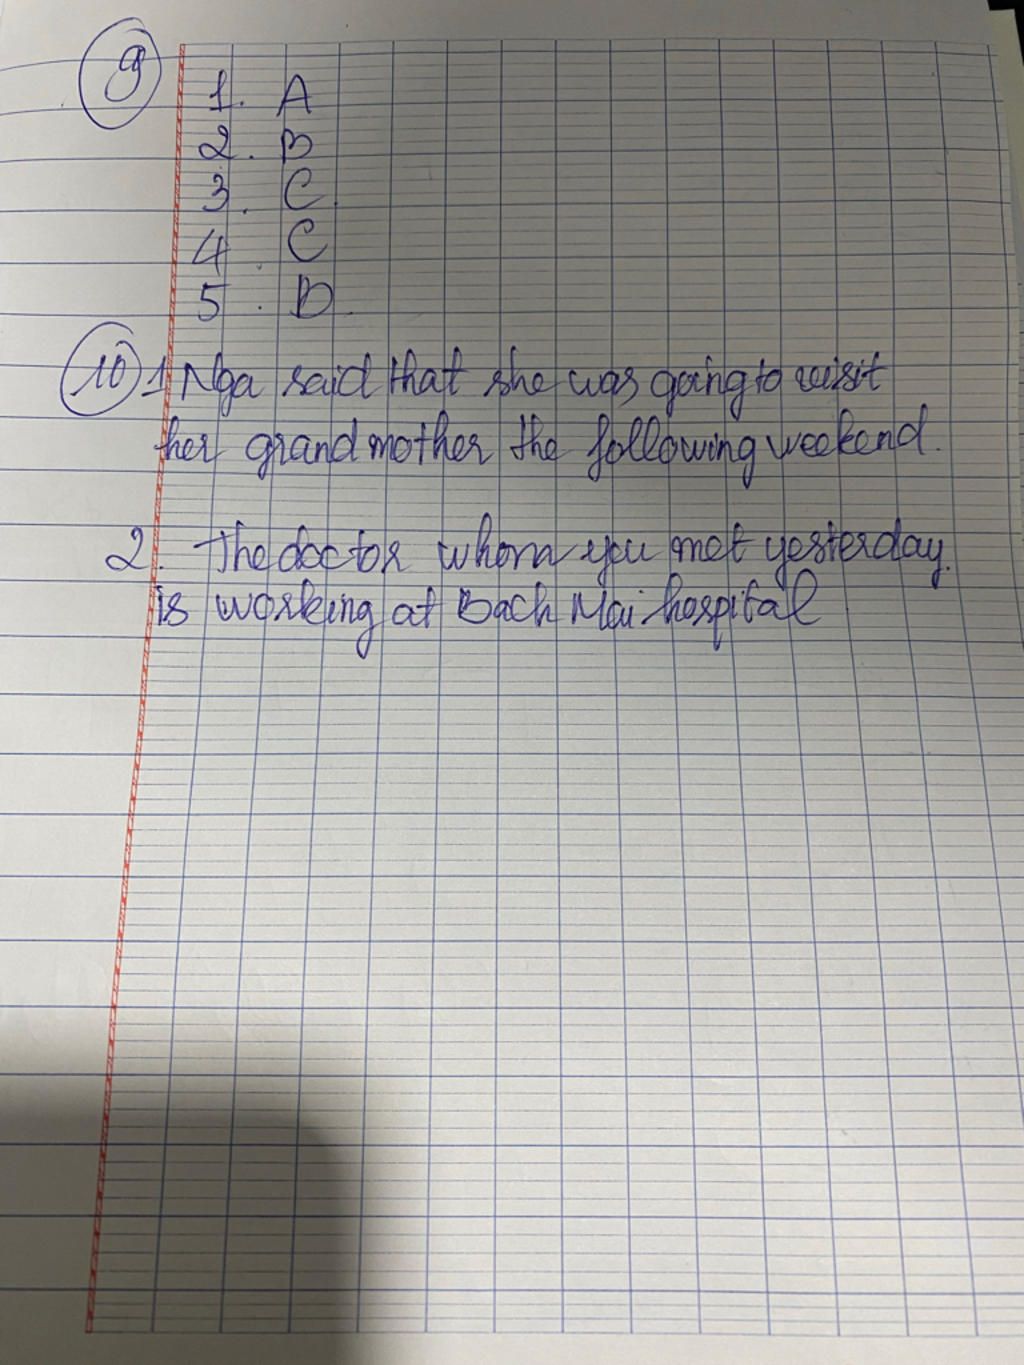 9
1. A
2. B
3. C
4. C
5. D.
10 1 Nga said that she was going to visit
her grandmother the following weekend.
2. The doctor whom you met yesterday.
is working at Bach Mai hospital